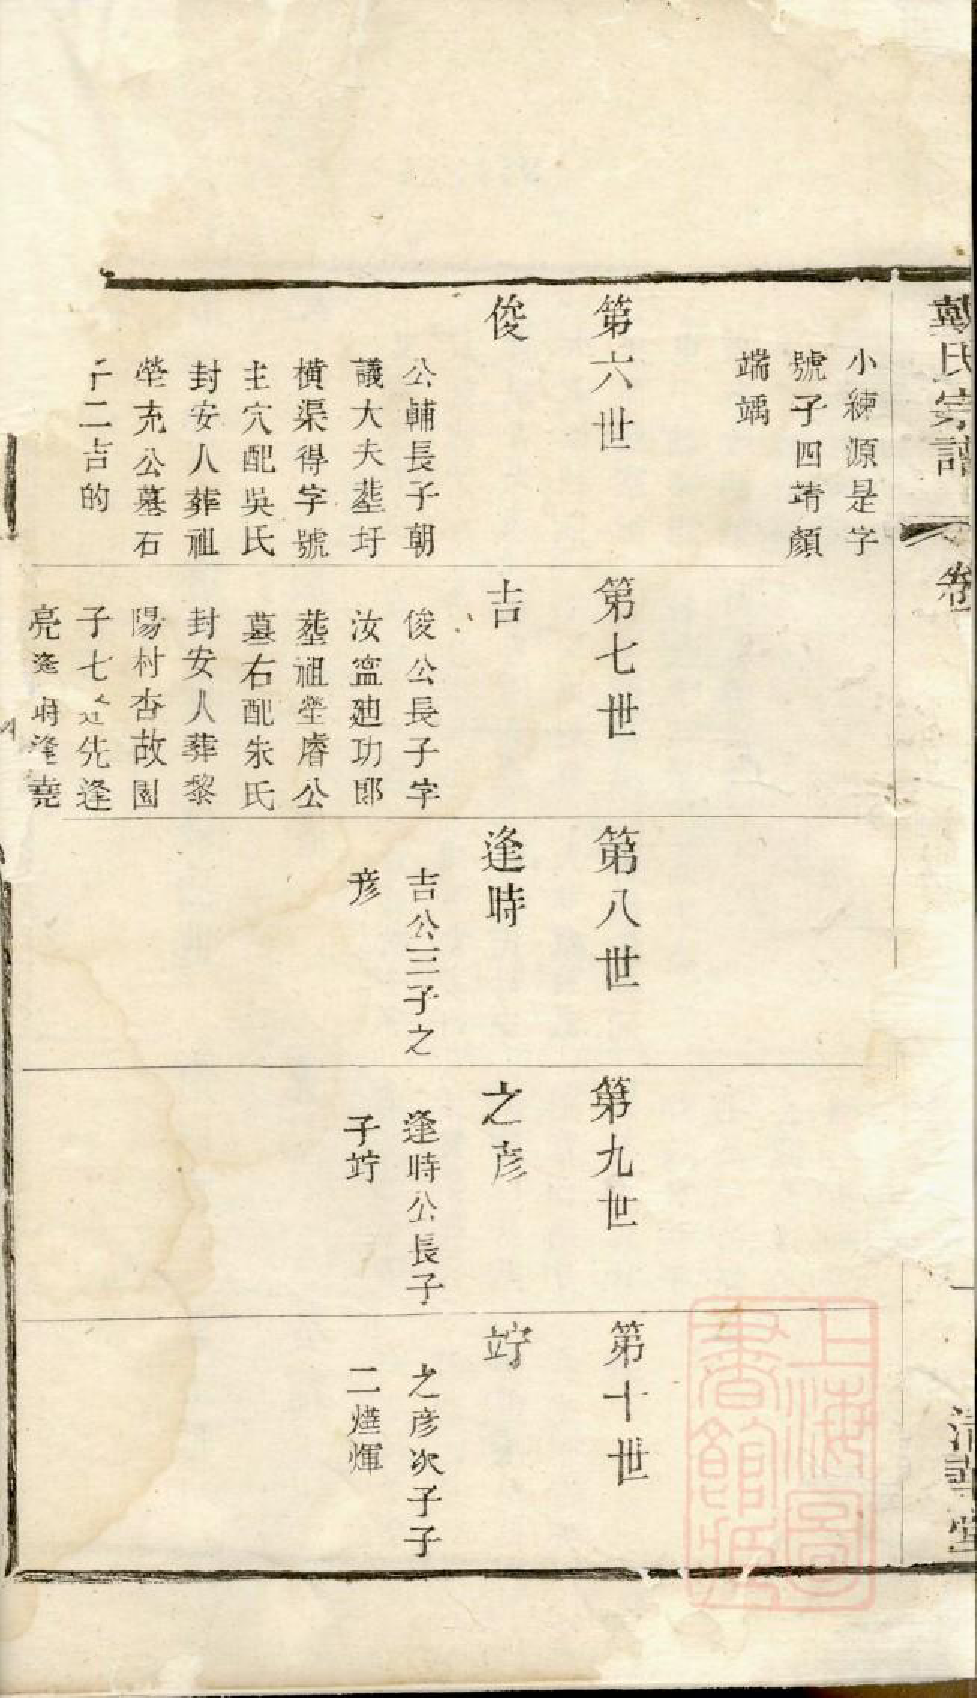 戴氏宗譜
卷
小練源是字
號子四靖顏
端竬
第六世
俊
公輔長子朝
議大夫塟圩
橫渠得字號
主穴配吳氏
封安人葬祖
塋充公墓石
子二吉的
第七世
吉
俊公長子字
汝寍廸功郎
塟祖塋睿公
墓右配朱氏
封安人葬黎
陽村杏故園
子七 先逢
亮逢時逢堯
第八世
逢時
吉公三子之
彥
第九世
之彥
逢時公長子
子竚
第十世
竚
之彥次子子
二燁輝
上海圖
書館藏